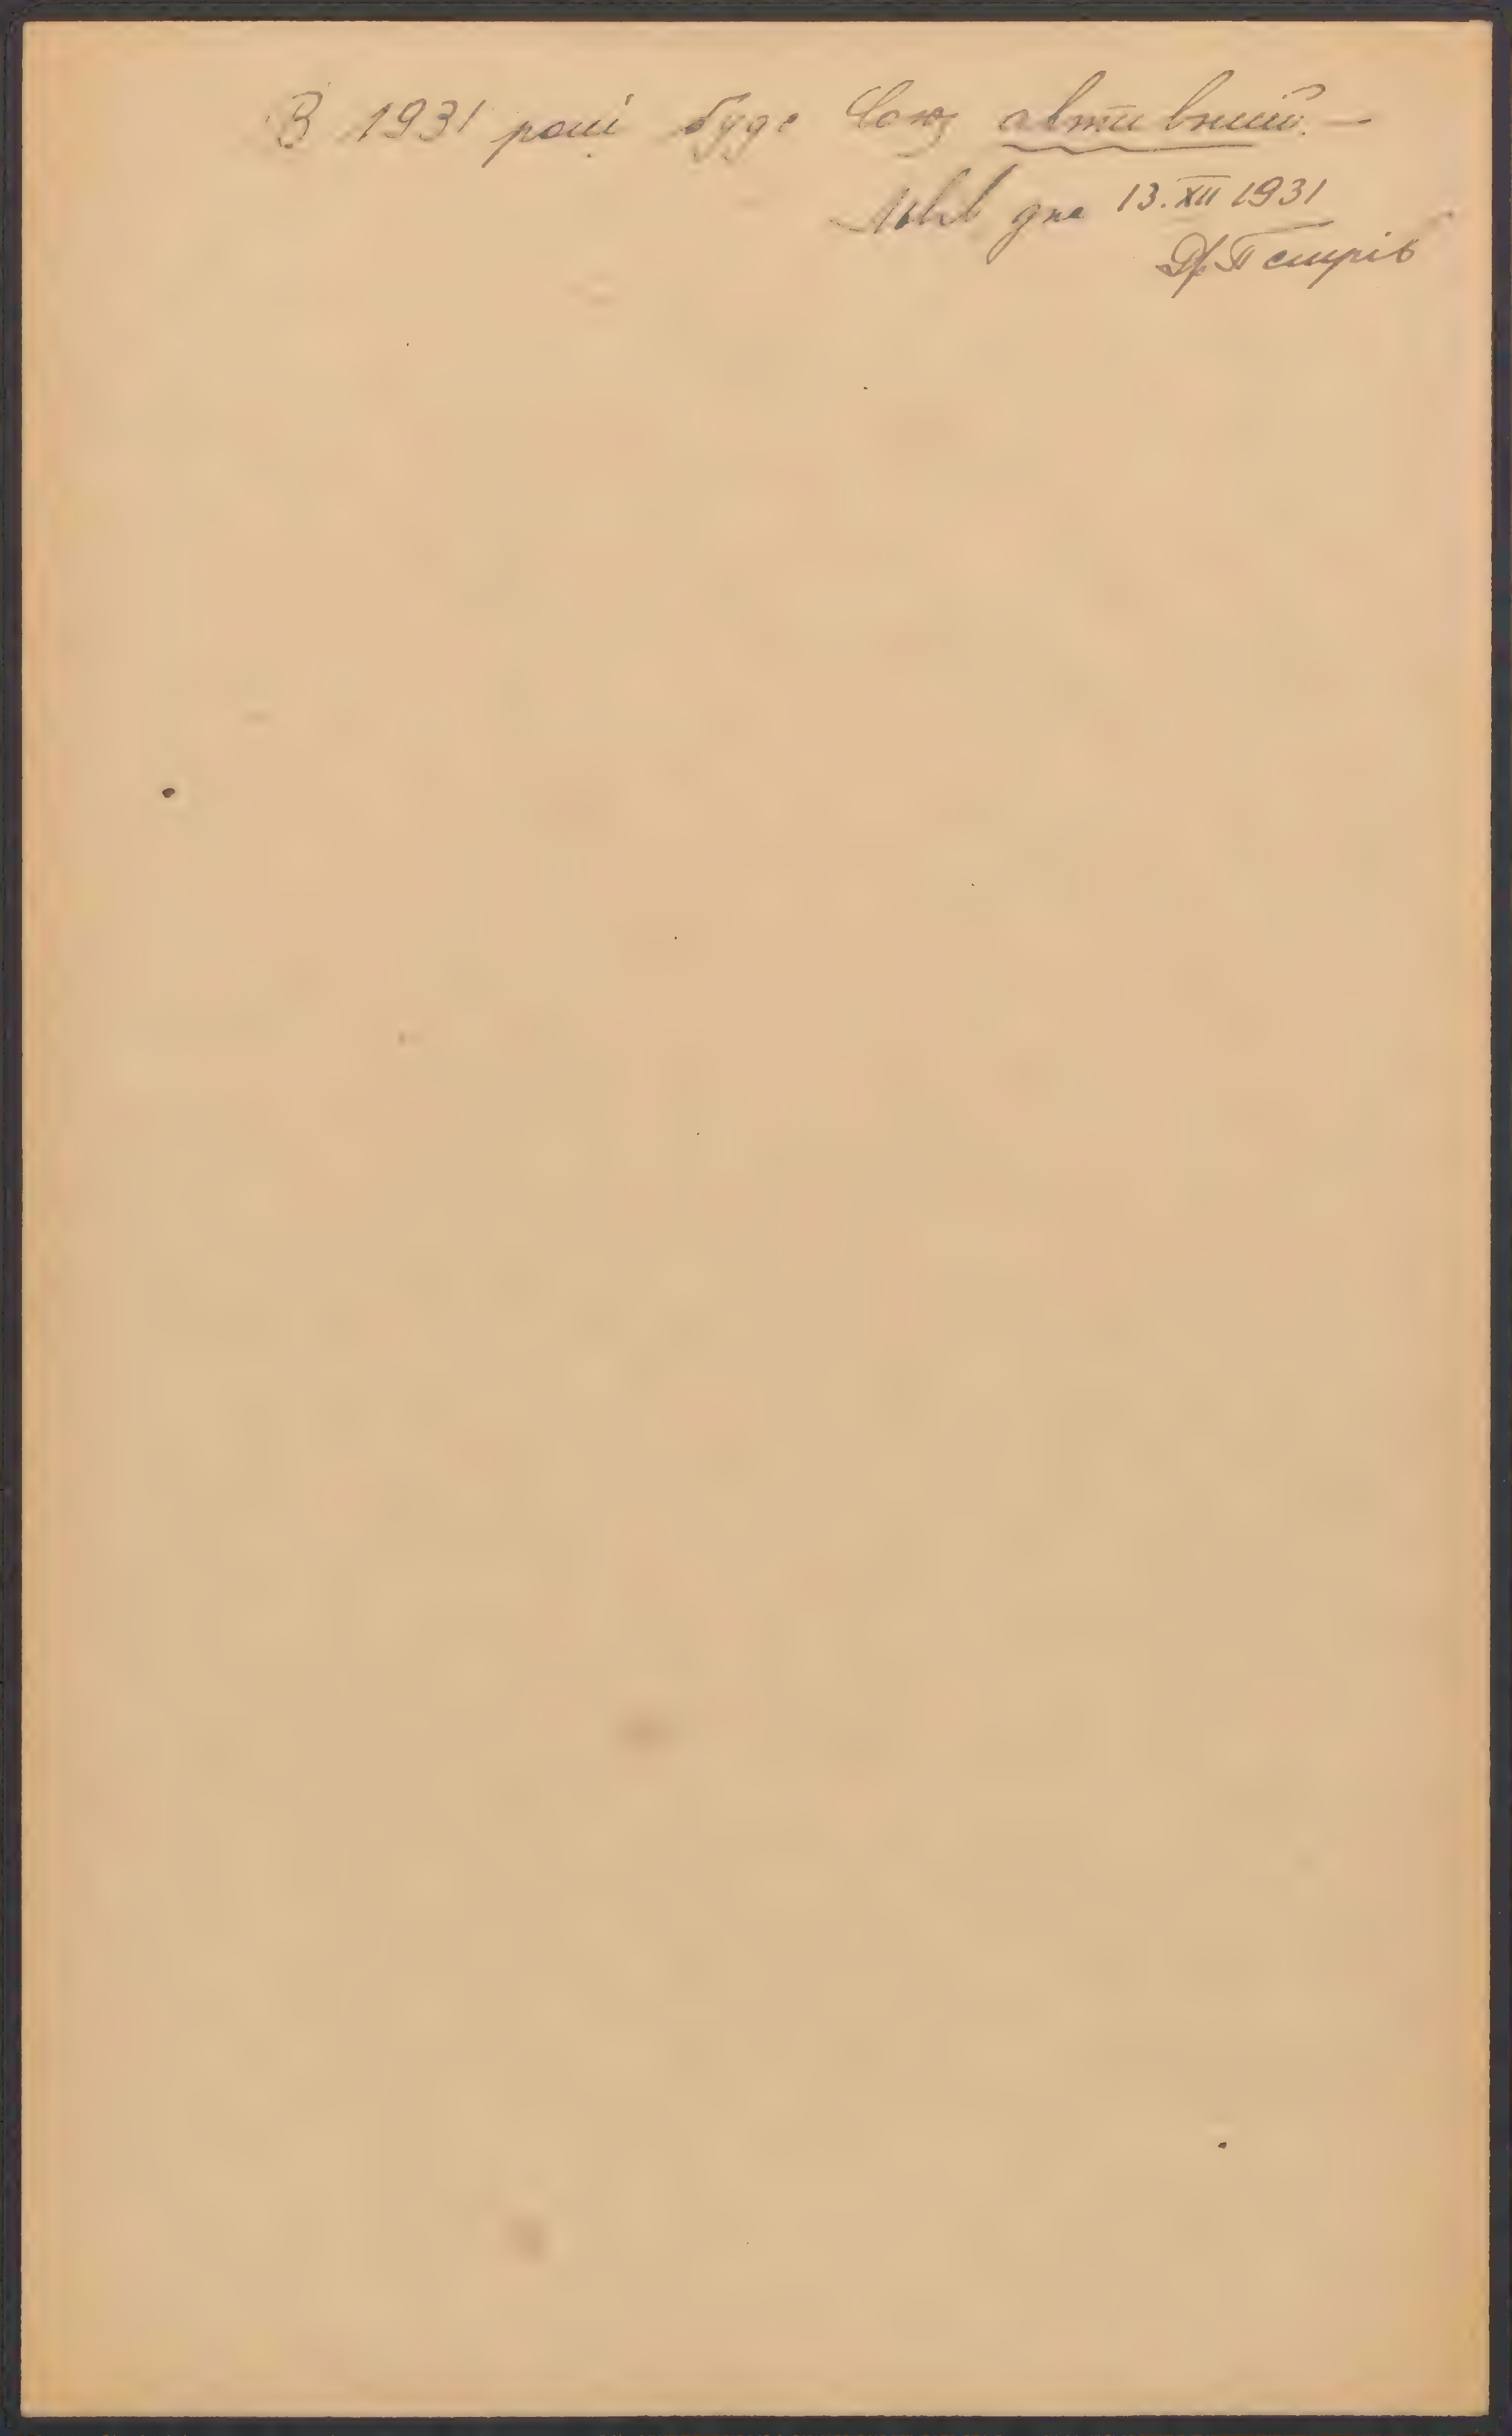 В 1931 році буде Союз активний. —
Львів дня 13. XII 1931
Др Петрів